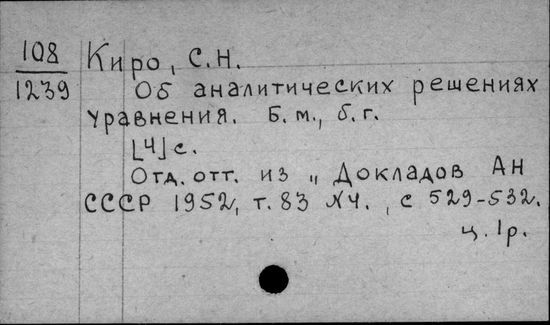 108
1239
Киро, С.Н.
Об аналитических решениях
уравнения. Б.м., б.г.
[4]с.
Отд. отт. из „Докладов АН
СССР 1952, т. 83 №4. , с 529-532.
ц. 1р.